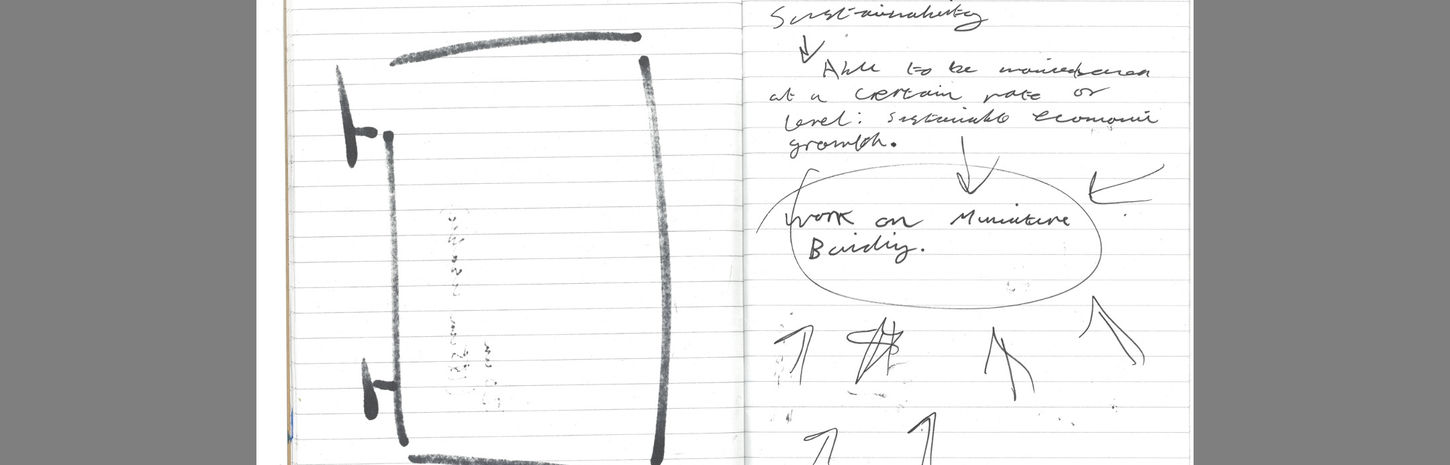 Sustainability
Able to be maintained
at a certain rate or
level: sustainable economic
growth.
Work on Miniature
Building.